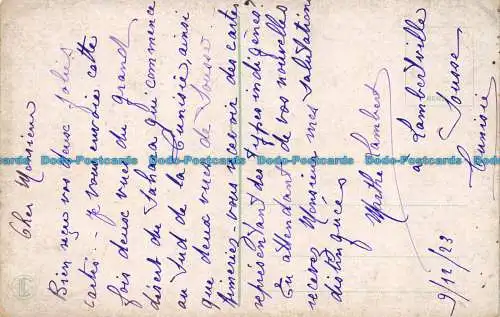 Cher Monsieur
Bien reçu vos deux jolies
cartes. - je vous envoie cette
fois deux vues du grand
désert du Sahara qui commence
au Sud de la Tunisie, ainsi
que deux vues de Sousse
Aimeriez-vous recevoir des cartes
représentant des types indigènes
En attendant de vos nouvelles
recevez Monsieur mes salutations
distinguées
Marthe Lambert
à Lambertville
Sousse
Tunisie
9/12/23